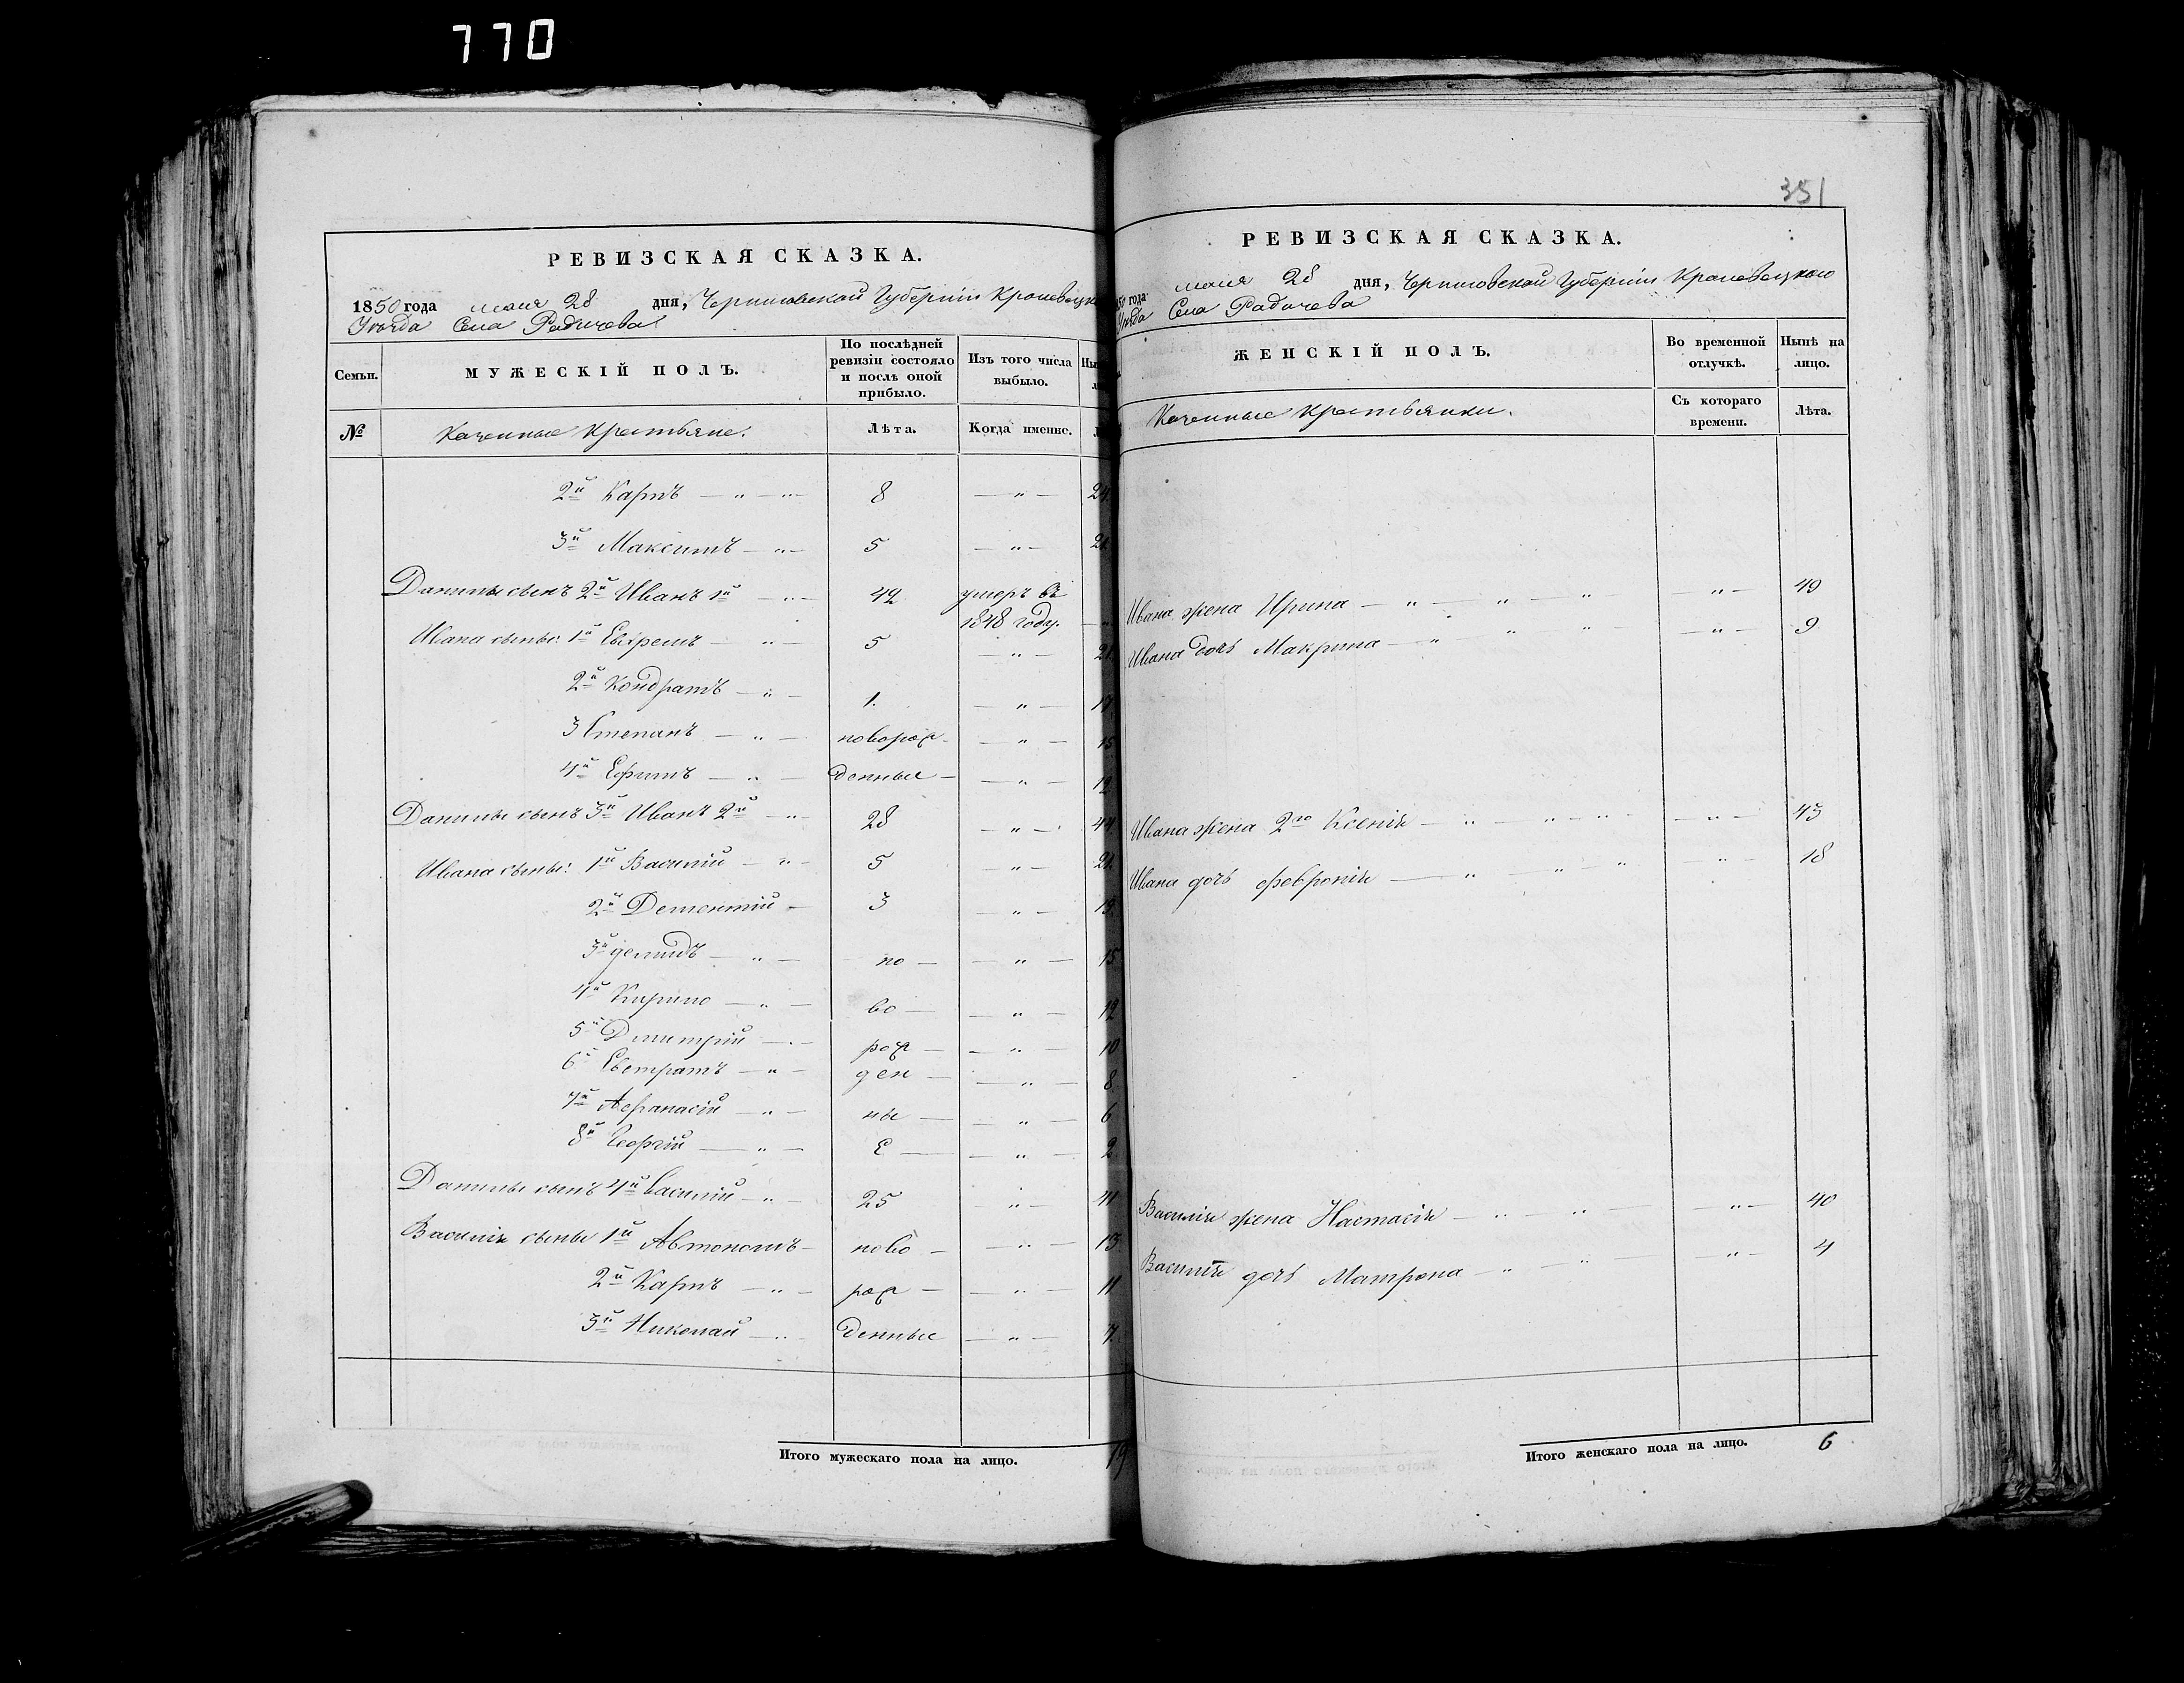 770
РЕВИЗСКАЯ СКАЗКА.
1850 года мая 28 дня, Черниговской Губернии Кролевецк
Уѣзда Села Радичева
Семьи.
МУЖЕСКІЙ ПОЛЪ.
По послѣдней ревизіи состояло и послѣ оной прибыло.
Изъ того числа выбыло.
№
Казенные Крестьяне.
Лѣта.
Когда именно.
2й Карпъ — " — " 8 — " — 24.
3й Максимъ — " — 5 — " — 21
Данилы сынъ 2й Иванъ 1й — " — 42 умеръ въ
1848 году. — "
Ивана сыны: 1й Евхремъ — " — 5 — " — 21.
2й Кондратъ — " — 1. — " — 17.
3 Степанъ — " — новорож — " — 15
4й Ефимъ — " — денные — " — 12
Данилы сынъ 3й Иванъ 2й — " — 28 — " — 44.
Ивана сыны: 1й Василий — " — 5 — " — 21.
2й Дементий — 3 — " — 19.
3й Демидъ — " — но — " — 15
4й Кирило — " — во — " — 12
5й Дмитрій — " — рож — " — 10
6й Евстратъ — " — ден — " — 8.
7й Афанасій — " — ны — " — 6
8й Георгій — " — е — " — 2.
Данилы сынъ 4й Василій — " — 25 — " — 41
Василія сыны 1й Автономъ — ново — " — 13.
2й Карпъ — " — рож — " — 11
3й Николай — " — денные — " — 7.
Итого мужескаго пола на лицо. 19
351
РЕВИЗСКАЯ СКАЗКА.
50 года мая 28 дня, Черниговской Губерніи Кролевецкого
Уѣзда Села Радичева
ЖЕНСКІЙ ПОЛЪ.
Во временной отлучкѣ.
Нынѣ на лицо.
Казенные Крестьянки.
Съ котораго времени.
Лѣта.
Ивана жена Ирина — " — " — " — " — 49
Ивана дочь Макрина — " — " — " — " — 9
Ивана жена 2го Ксенія — " — " — " — " — 43
Ивана дочь Февронія — " — " — " — " — 18
Василія жена Настасія — " — " — " — 40
Василія дочь Матрона — " — " — " — 4
Итого женскаго пола на лицо. 6